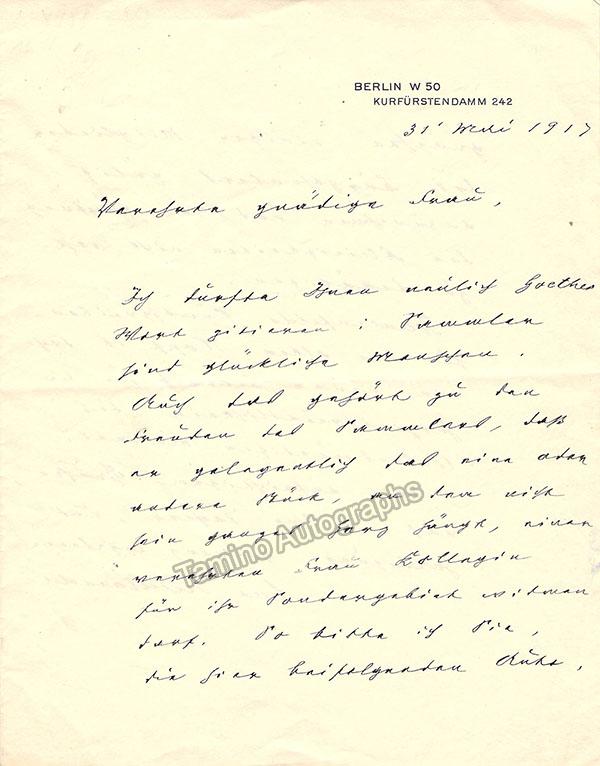 BERLIN W 50
KURFÜRSTENDAMM 242
31 Mai 1917
Verehrte gnädige Frau,
Ich durfte Ihnen neulich Goethes
Wort zitieren: Sammler
sind glückliche Menschen.
Auch das gehört zu den
Freuden des Sammlers, daß
er gelegentlich das eine oder
andere Stück, an dem nicht
sein ganzes Herz hängt, einer
verehrten Frau Kollegin
für ihr Sondergebiet widmen
darf. So bitte ich Sie,
die hier beifolgenden Auto-
Tamino Autographs